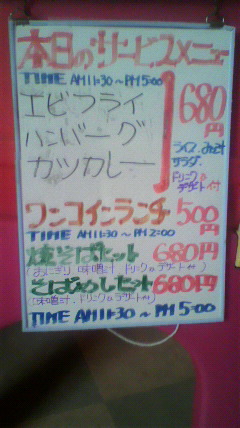 本日のサービスメニュー
TIME AM11:30~PM5:00
エビフライ
ハンバーグ
カツカレー
680円
ライス みそ汁
サラダ
ドリンク&デザート付
ワンコインランチ 500円
TIME AM11:30~PM2:00
焼そばセット 680円
(おにぎり 味噌汁 ドリンク&デザート付)
そばめしセット 680円
(味噌汁.ドリンク&デザート付)
TIME AM11:30~PM5:00